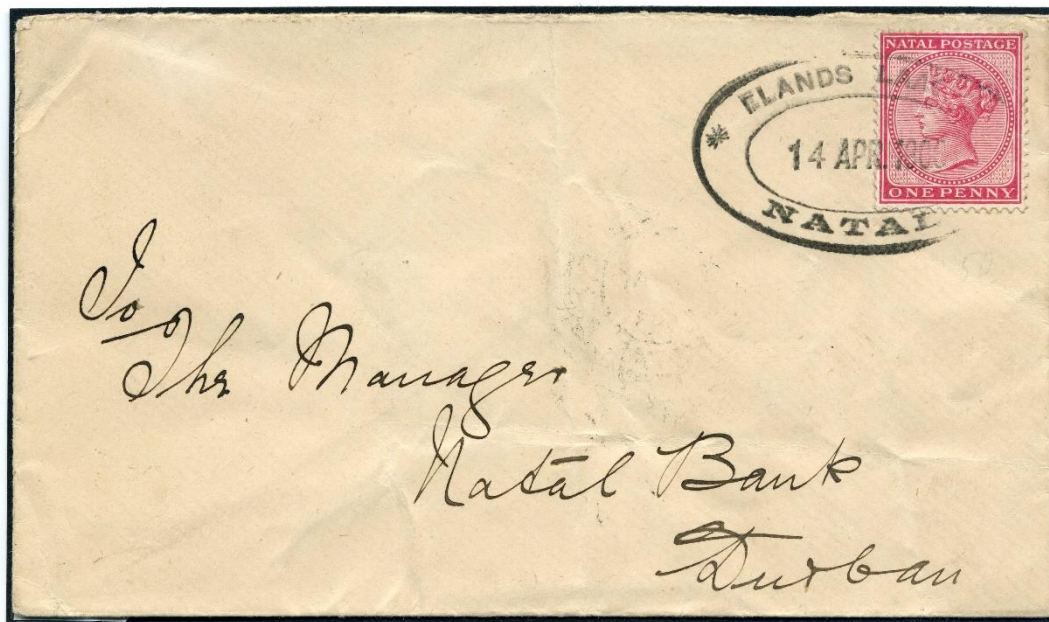 NATAL POSTAGE
ONE PENNY
ELANDS
14 APR.
NATAL
To
The Manager
Natal Bank
Durban